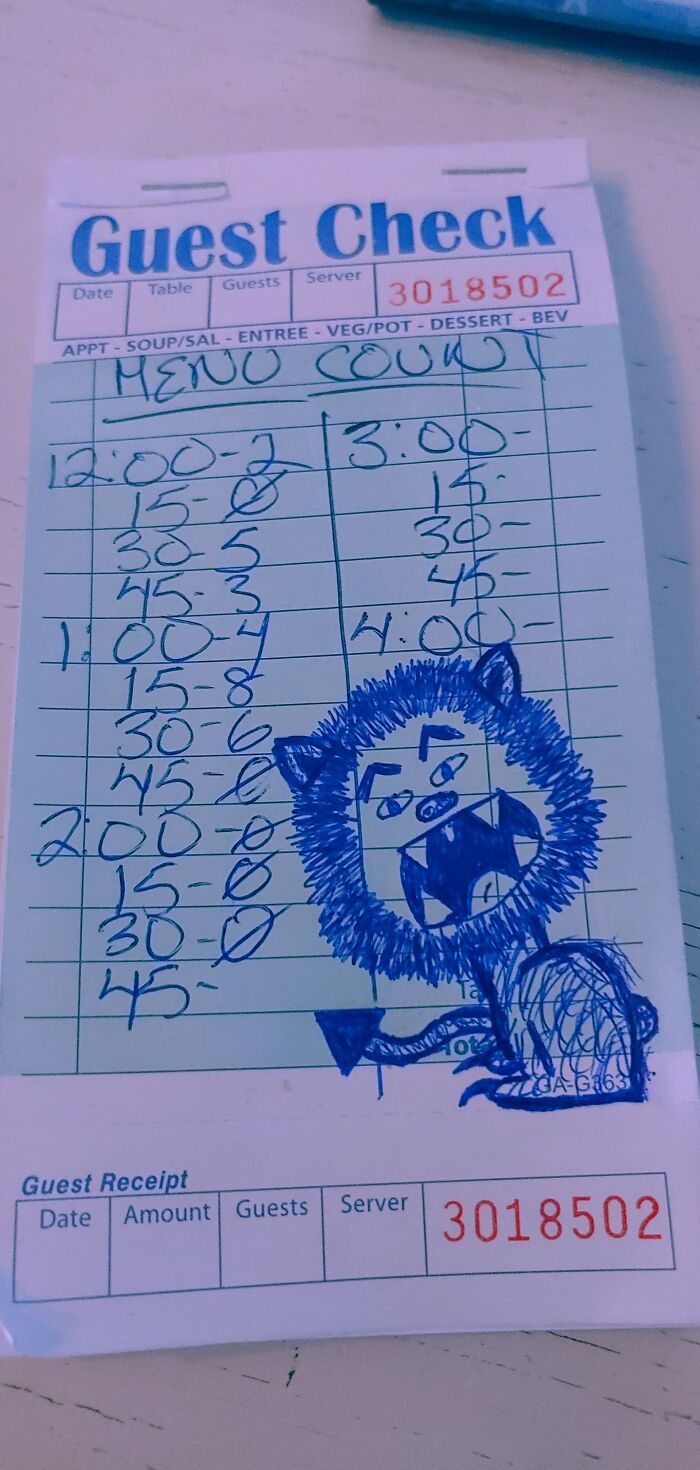 Guest Check
Date Table Guests Server 3018502
APPT - SOUP/SAL - ENTREE - VEG/POT - DESSERT - BEV
MENU COUNT
12:00-2
15-0
30-5
45-3
1:00-4
15-8
30-6
45-0
2:00-0
15-0
30-0
45-
3:00-
15-
30-
45-
4:00-
Guest Receipt
Date Amount Guests Server 3018502